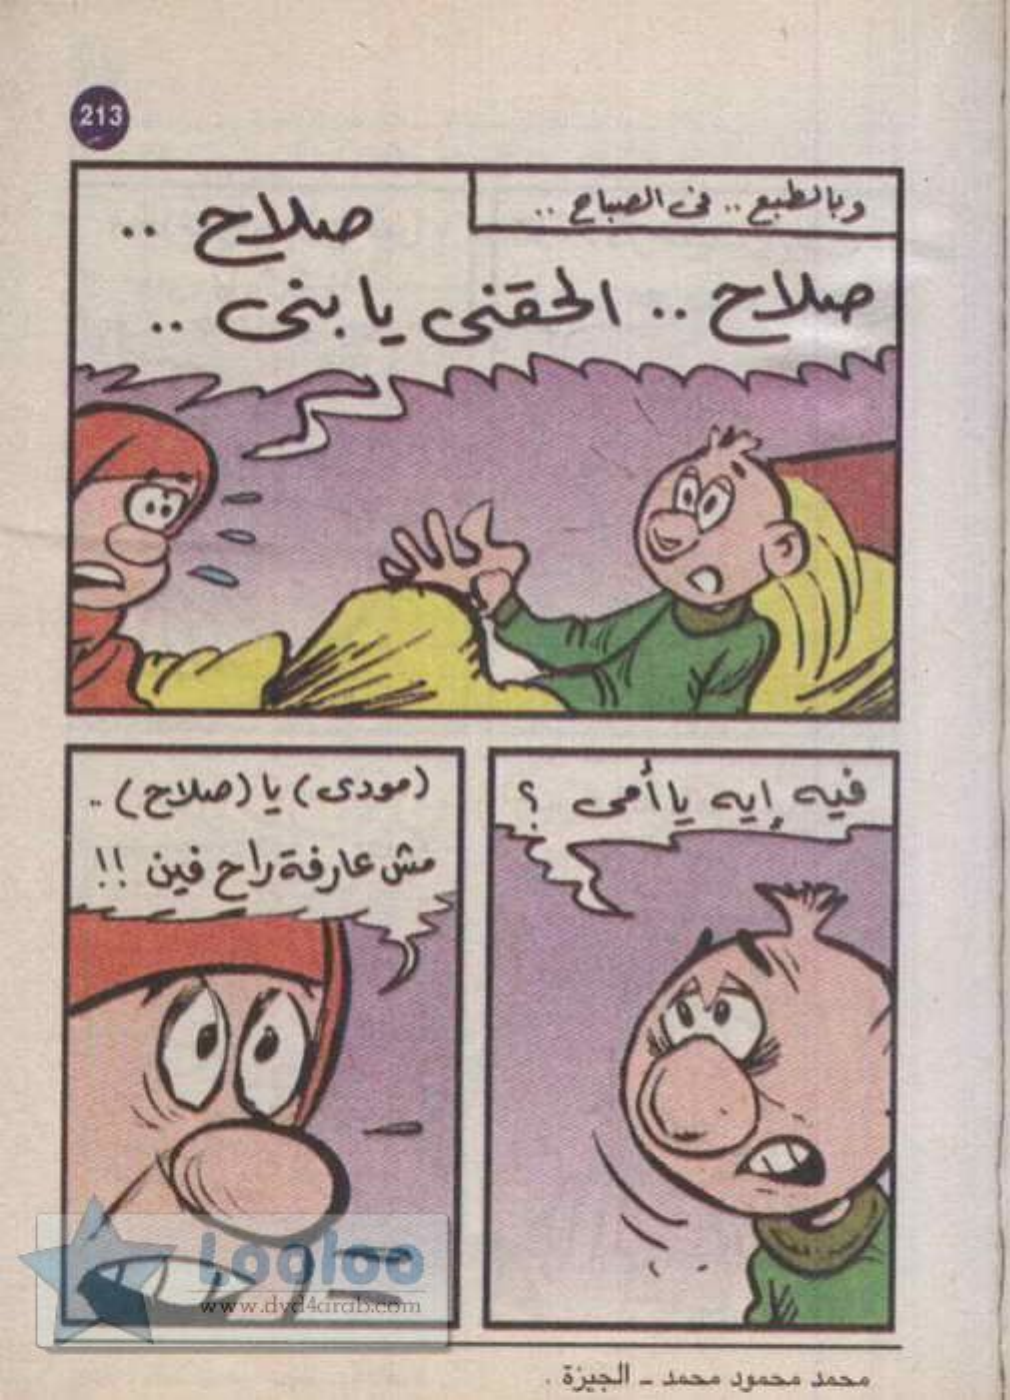 213
وبالطبع .. فى الصباح ..
صلاح ..
صلاح .. الحقنى يا بنى ..
فيه إيه يا أمى ؟
(مودى) يا (صلاح) ..
مش عارفة راح فين !!
Looloo
www.dvd4arab.com
محمد محمود محمد - الجيزة .